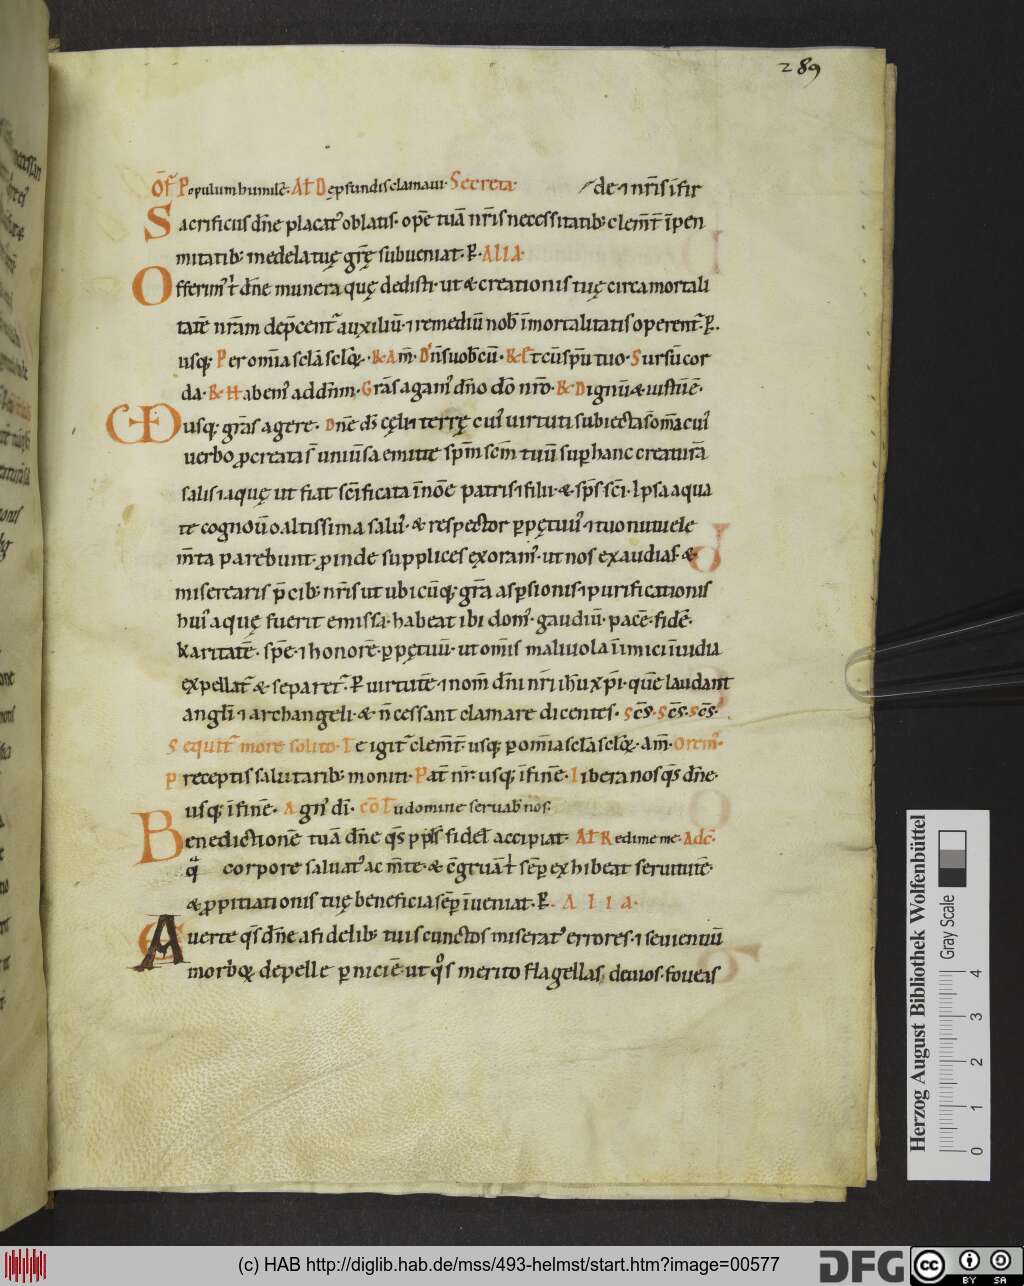 289
Of̄ Populum humilē. Alt̄ Dep̄fundis clamaui. Secreta. de ⁊ nr̄is īfir
Sacrificiis dn̄e placat᾽ oblatis. ope tuā nr̄is necessitatib; clem̄t īpen
mitatib; medela tuę gr̄ę subueniat. P. Alia.
Offerim᾽ t̄ dn̄e munera quę dedisti. ut & creationis tuę circa mortali
tatē nr̄am dep̄cent᾽ auxiliū. ⁊ remediū nob̄ īmortalitatis operent᾽. P.
usq; Per om̄ia sclā sclo̧ꝝ. & Am̄. Dn̄s uob̄cū. & Et cū sp̄u tuo. Sursū cor
da. & Habem᾽ ad dn̄m. Grās agam᾽ dn̄o dō nr̄o. & Dignū & iustū ē.
usq; grās agere. Dn̄e ds̄ cęli ⁊ terrę cui᾽ uirtuti subiecta s̄ om̄a cui᾽
uerbo ꝓcreata s̄ uniūsa emitte sp̄m sc̄m tuū sup hanc creaturā
salis ⁊ aquę ut fiat sc̄ificata ī nōe patris ⁊ filii & sp̄s sc̄i. Ipsa aqua
te cognou̅ o altissima salu᾽. & respector ꝑpętuu᾽ ⁊ tuo nutu ele
m̄ta parebunt. ꝓinde supplices exoram᾽. ut nos exaudias &
miserearis p̄cib; nr̄is ut ubicūq; gr̄a aspsionis ⁊ purificationis
hui᾽ aquę fuerit emissa. habeat ibi dom᾽. gaudiū. pacē. fidē.
karitatē. spē. ⁊ honorē. ꝑpętuū. ut om̄is maliuola īimici īuidia
expellat᾽ & separet᾽. P uirtutē ⁊ nom̄ dn̄i nr̄i ih̄u xp̄i. quē laudant
angl̄i ⁊ archangeli. & n̄ cessant clamare dicentes. Sc̄s. Sc̄s. Sc̄s.
Sequit᾽ more solito. Te igit᾽ clem̄t. usq; ꝑ om̄ia sclā sclo̧ꝝ. am̄. Orem᾽.
Preceptis salutarib; moniti. Pat̄ nr̄. usq; ī finē. Libera nos qs̄ dn̄e.
usq; ī finē. Agn᾽ dī. Cō Tu domine seruab̄ nos.
Benedictionē tuā dn̄e qs̄ ppl̄s fidel̄ accipiat. Alt̄ Redime me. Adc̄.
qᵃ corpore saluat᾽ ac m̄te. & c̄gruā t̄ sēp exhibeat seruitutē.
& ꝓpitiationis tuę beneficia sēp īueniat. P. Alia.
Auerte qs̄ dn̄e a fidelib; tuis cunctos miserat᾽ errores. ⁊ seuientiū
morboꝝ depelle ꝑniciē. ut qͦs merito flagellas deuios. foueas
Herzog August Bibliothek Wolfenbüttel
Gray Scale
0 1 2 3 4
(c) HAB http://diglib.hab.de/mss/493-helmst/start.htm?image=00577
DFG
cc BY SA